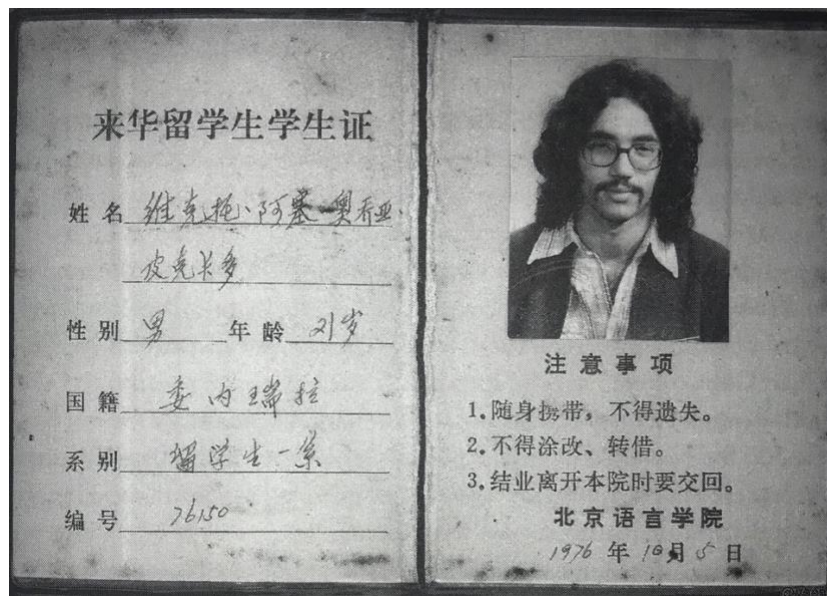 来华留学生学生证
姓名 维克托·阿塞·奥乔亚
皮克长多
性别 男 年龄 21岁
国籍 委内瑞拉
系别 留学生一系
编号 76150
注意事项
1.随身携带,不得遗失。
2.不得涂改、转借。
3.结业离开本院时要交回。
北京语言学院
1976年10月5日